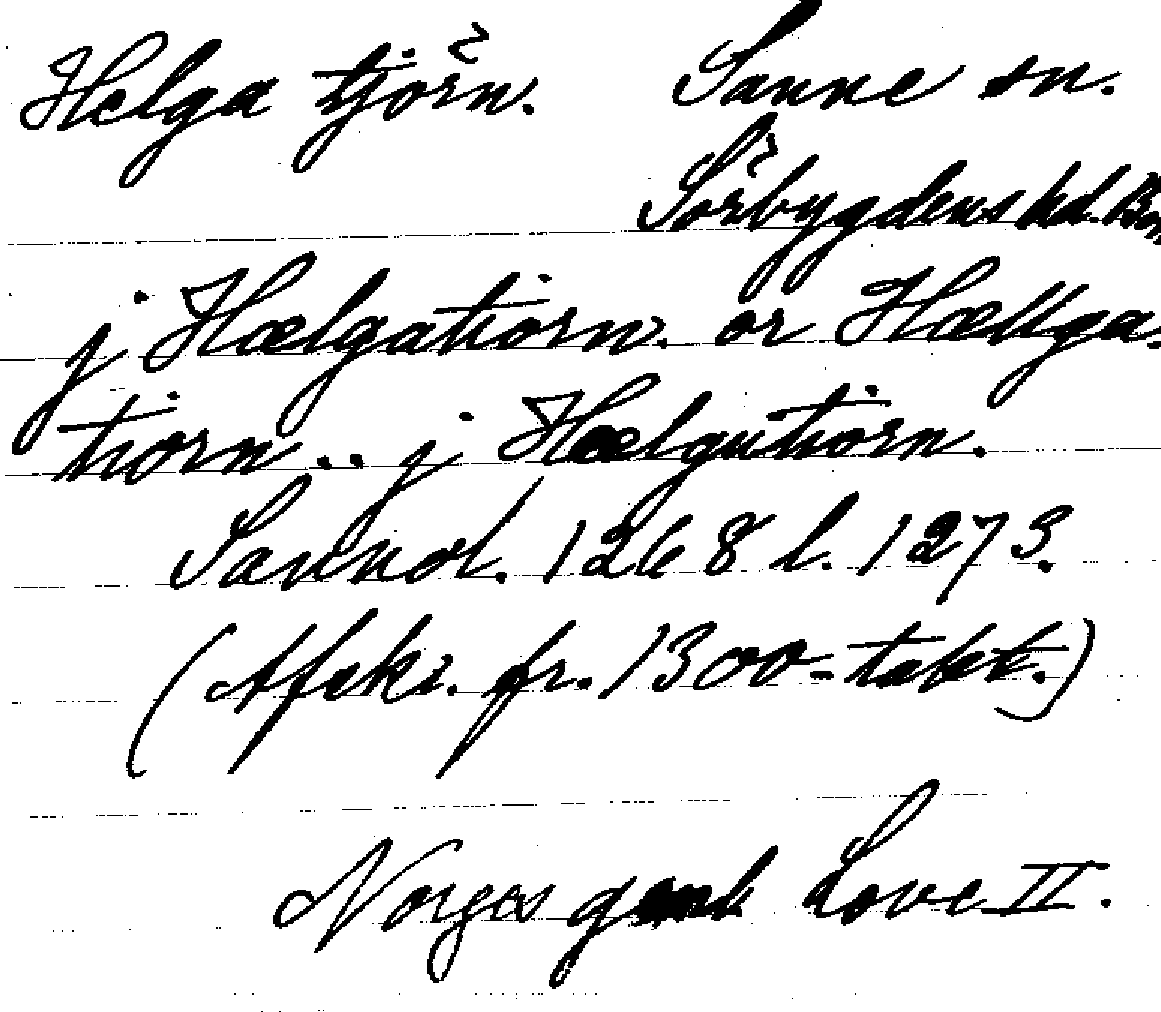 Helga tjörn. Sanne sn.
Sörbygdens hd. Boh
j Hælgatiorn. or Hællga-
tiorn .. j Hælgutiorn.
1268 l. 1273.
(Afskr. fr. 1300-talet.)
Norges gamle Love II.